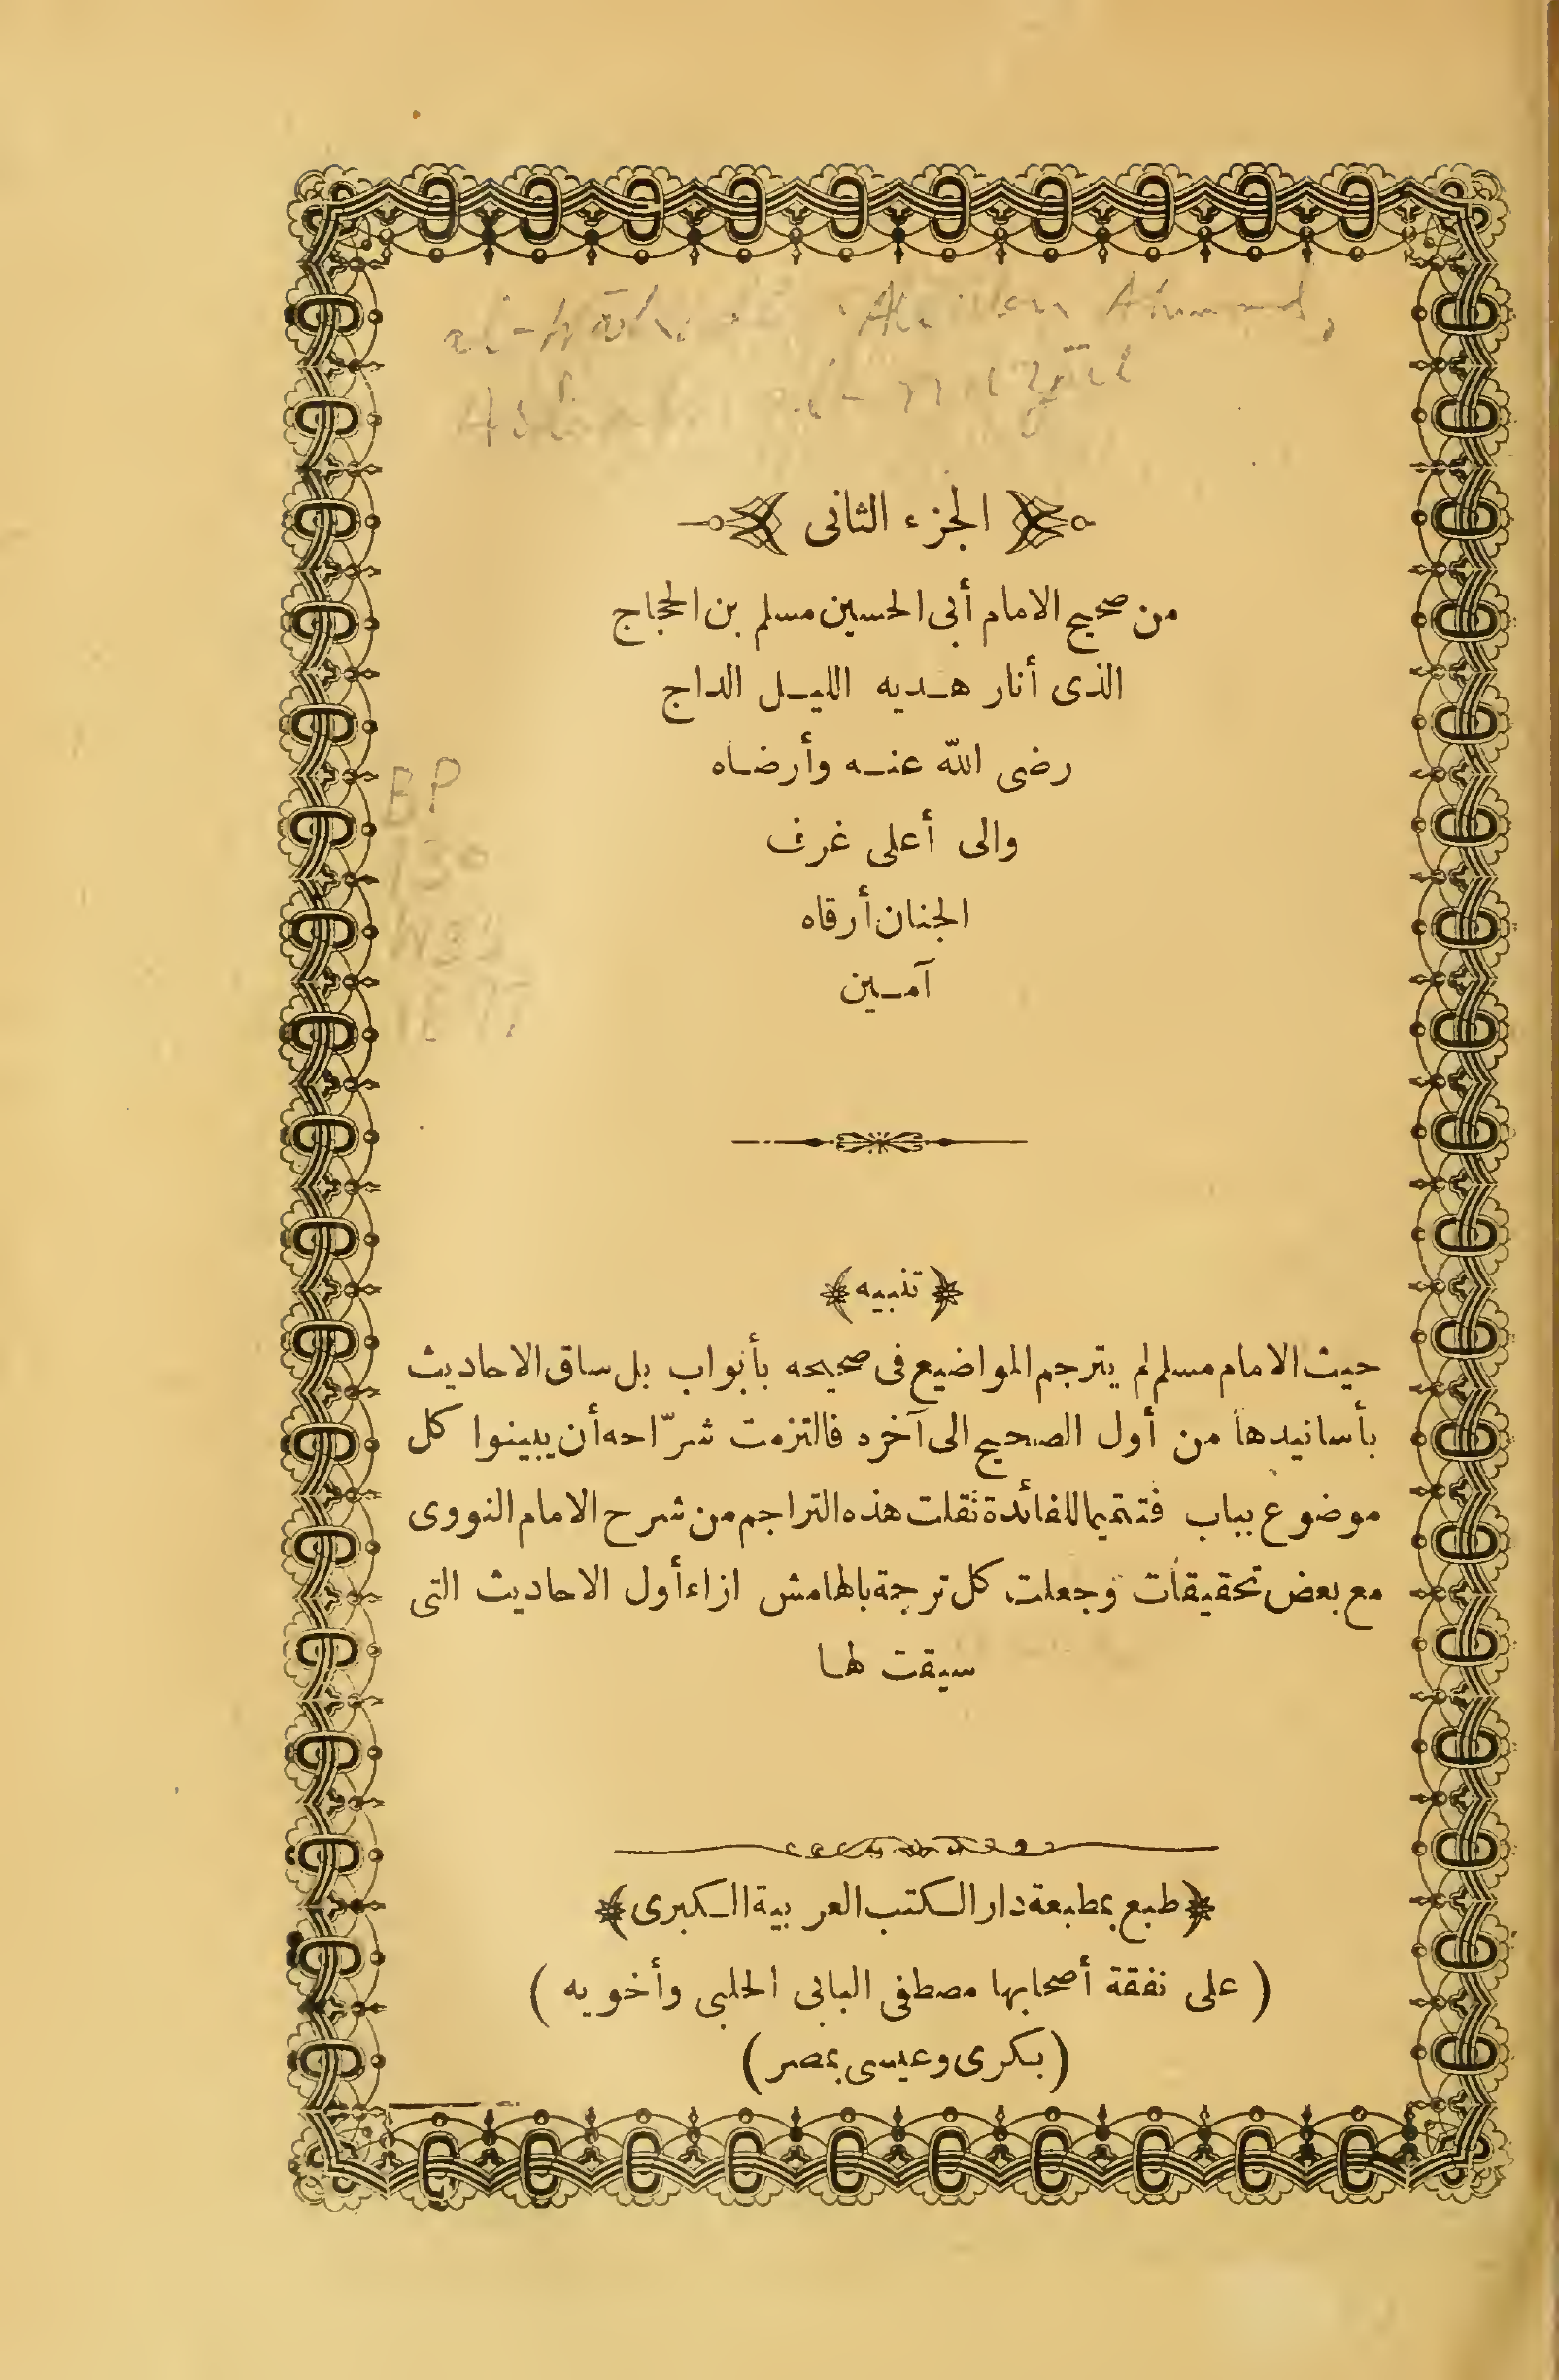 الجزء الثانى
من صحيح الامام أبى الحسين مسلم بن الحجاج
الذى أنار هديه الليل الداج
رضى الله عنه وأرضاه
والى أعلى غرف
الجنان أرقاه
آمين
BP
130
﴿تنبيه﴾
حيث الامام مسلم لم يترجم المواضيع فى صحيحه بأبواب بل ساق الاحاديث
بأسانيدها من أول الصحيح الى آخره فالتزمت شرّاحه أن يبينوا كل
موضوع بباب فتتميما للفائدة نقلت هذه التراجم من شرح الامام النووى
مع بعض تحقيقات وجعلت كل ترجمة بالهامش ازاء أول الاحاديث التى
سيقت لها
﴿طبع بمطبعة دار الكتب العربية الكبرى﴾
(على نفقة أصحابها مصطفى البابى الحلبى وأخويه)
(بكرى وعيسى بمصر)